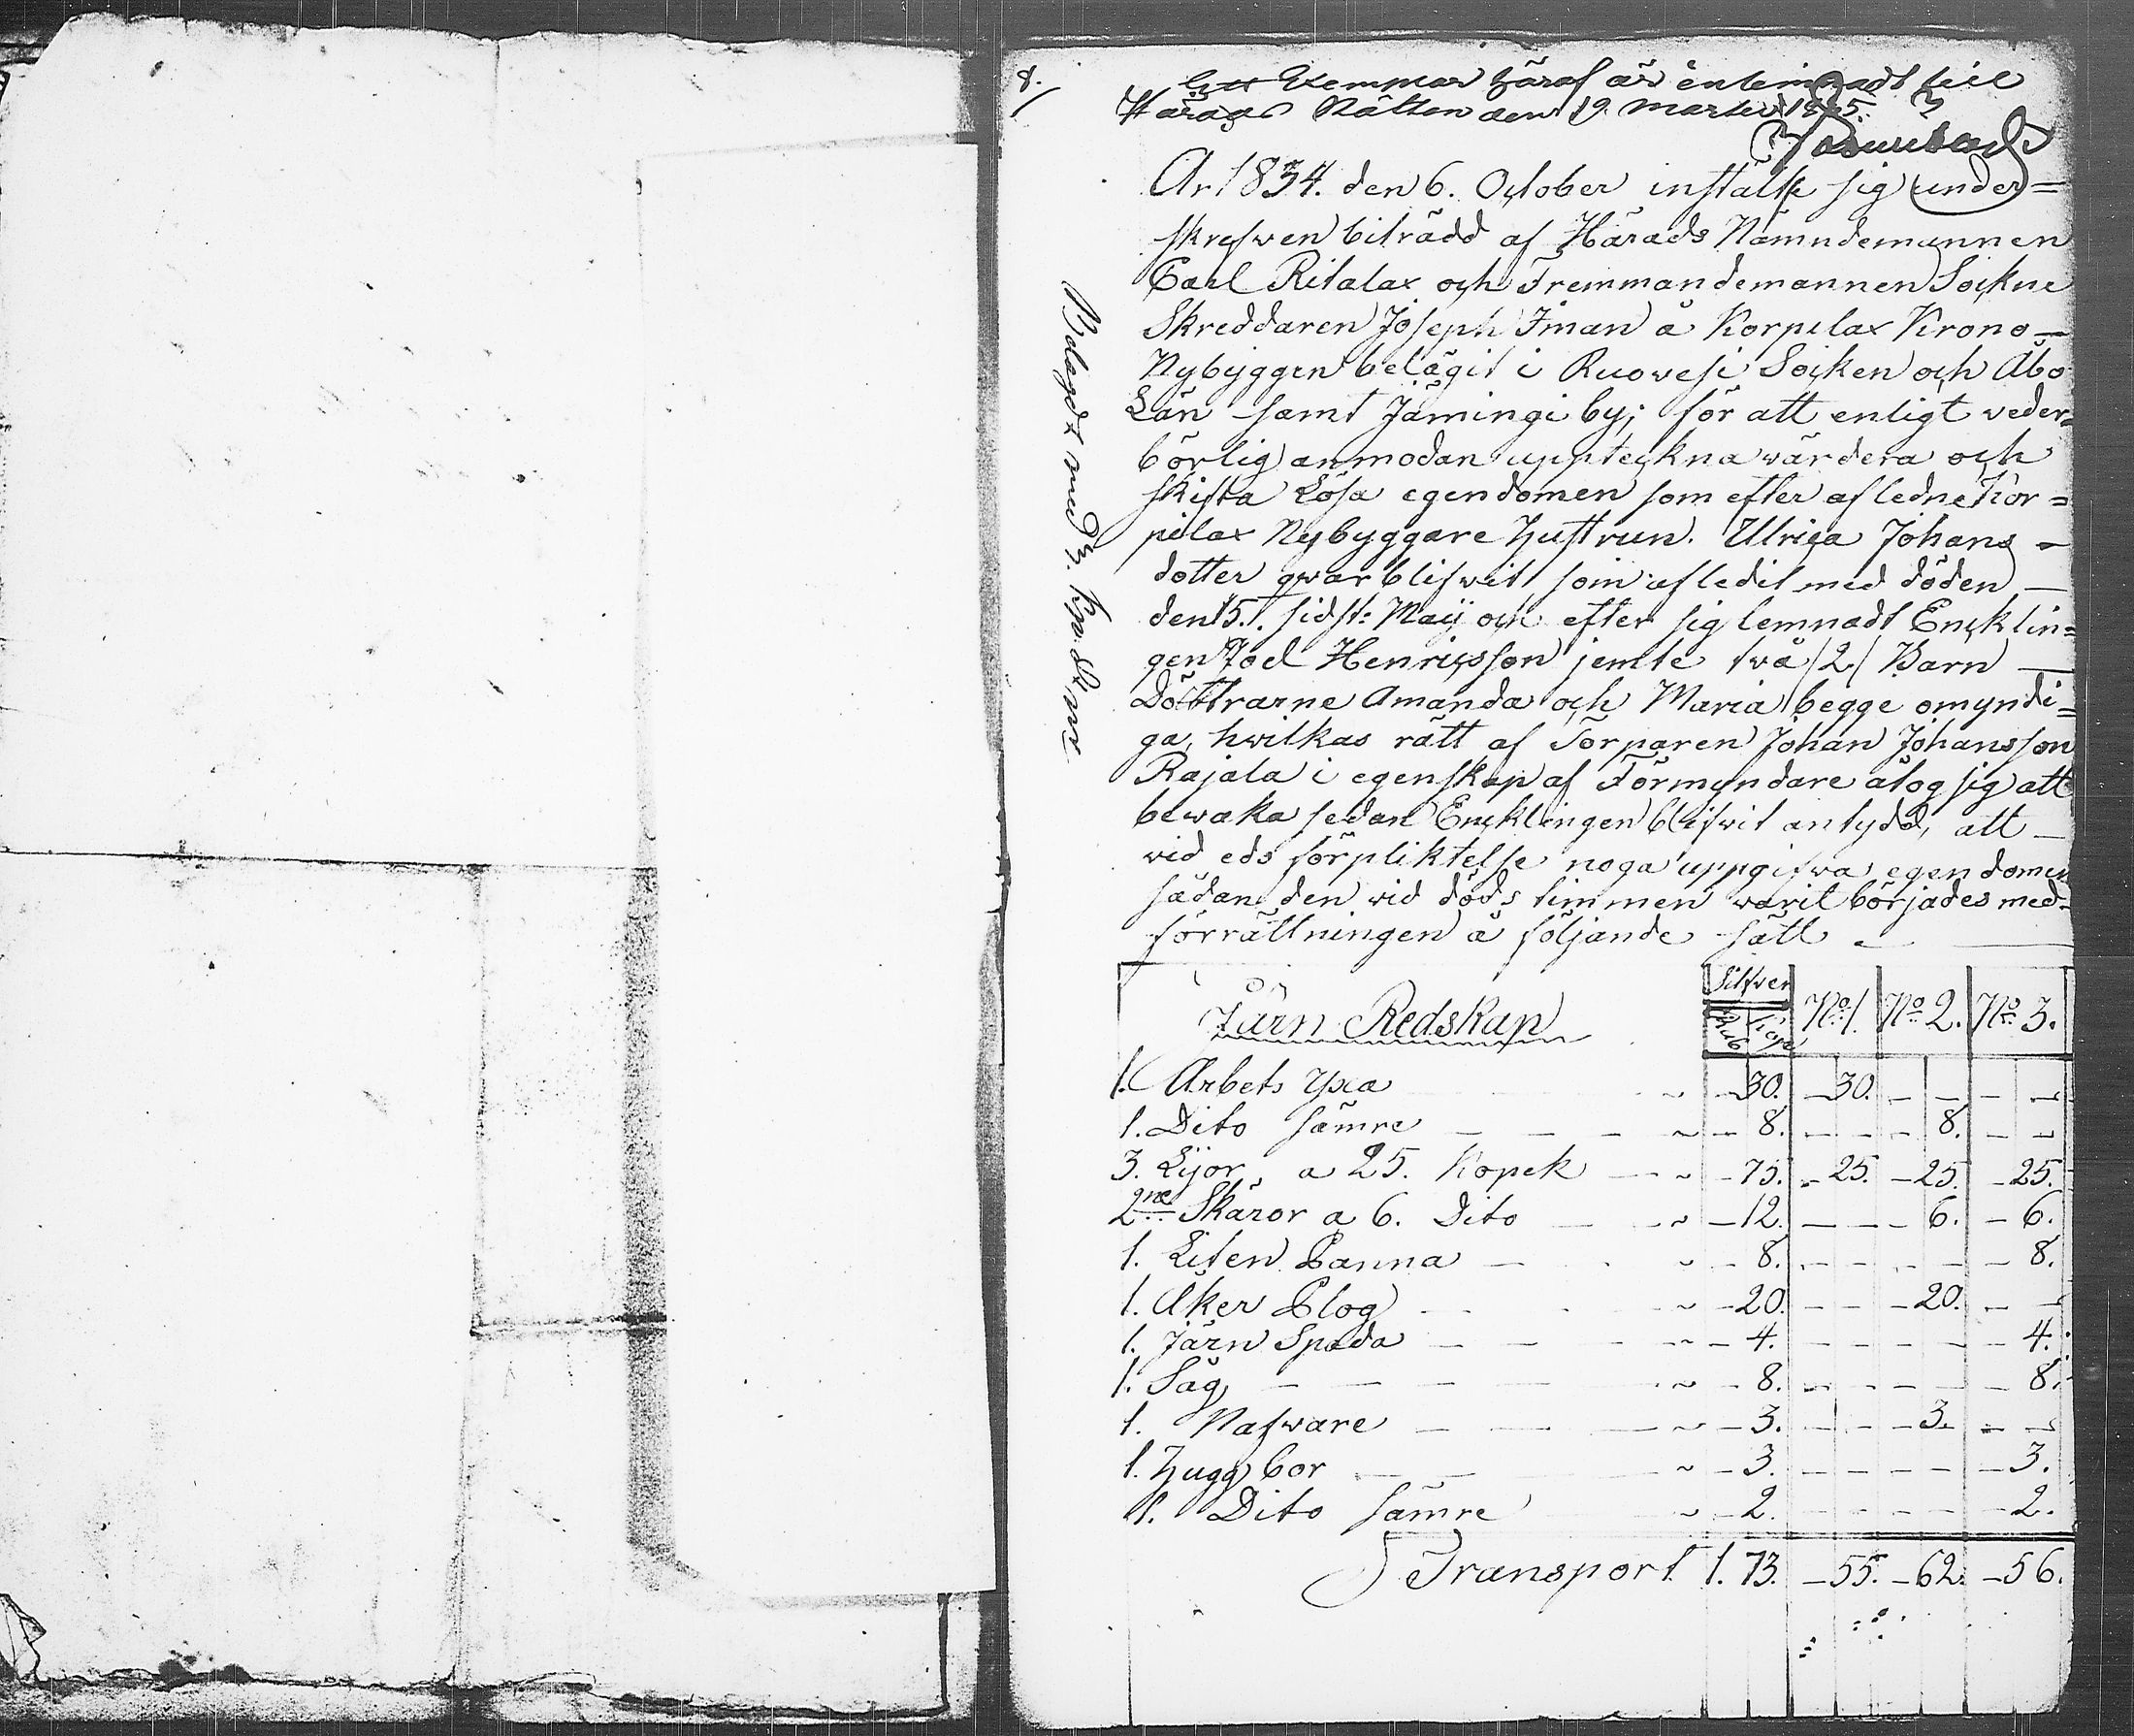 8.
Ett Exemplar häraf är inlemnadt till
Härads Rätten den 19 Martii 1835.
År 1834. den 6. October instälte sig under=
skrefwen biträdd af Härads Nämndemannen
Carl Ritalax och Fremmandemannen Sockne
Skreddaren Joseph Iman å Korpilax Krono-
Nybyggen belägit i Ruovesi Socken och Åbo
Län samt Jämingi by; för att enligt veder=
börlig anmodan uppteckna värdera och
skifta Lösa egendomen som efter afledne Kor=
pilax Nybyggare Hustrun. Ulrica Johans-
dotter qwarblifwit som afledit med döden —
den 15. sidst: Maij och efter sig lemnadt Encklin=
gen Joel Henricsson jemte två /2/ Barn —
Döttrarne Amanda och Maria begge omyndi=
ga, hwilkas rätt af Torparen Johan Johansson
Rajala i egenskap af Förmyndare åtog sig att
bewaka sedan Encklingen blifvit antydd, att —
vid eds förpliktelse noga uppgifwa egendomen
sådan den vid döds timmen warit börjades med
förrättningen å följande sätt —
Belagdt med
Silfver
Rub Kope
No 1. No 2. No 3.
Järn Redskap
1. Arbets yxa ~ — 30. — 30. — — — —
1. Dito sämre — — — ~ — 8. — — — 8. — —
3. Lijor a 25. Kopek — ~ — 75. — 25. — 25. — 25.
2ne Skäror a 6. Dito — ~ — 12. — — — 6. — 6.
1. Liten Panna — ~ — 8. — — — — — 8.
1. Åker Plog — ~ — 20. — — — 20. — —
1. Järn Spada — — — ~ — 4. — — — — — 4.
1. Såg — — — — ~ — 8. — — — — — 8.
1. Nafware — — — ~ — 3. — — — 3. — —
1. Hugg bor — — ~ — 3. — — — — — 3.
1. Dito sämre ~ — 2. — — — — — 2.
Transport 1. 73. — 55. — 62. — 56.